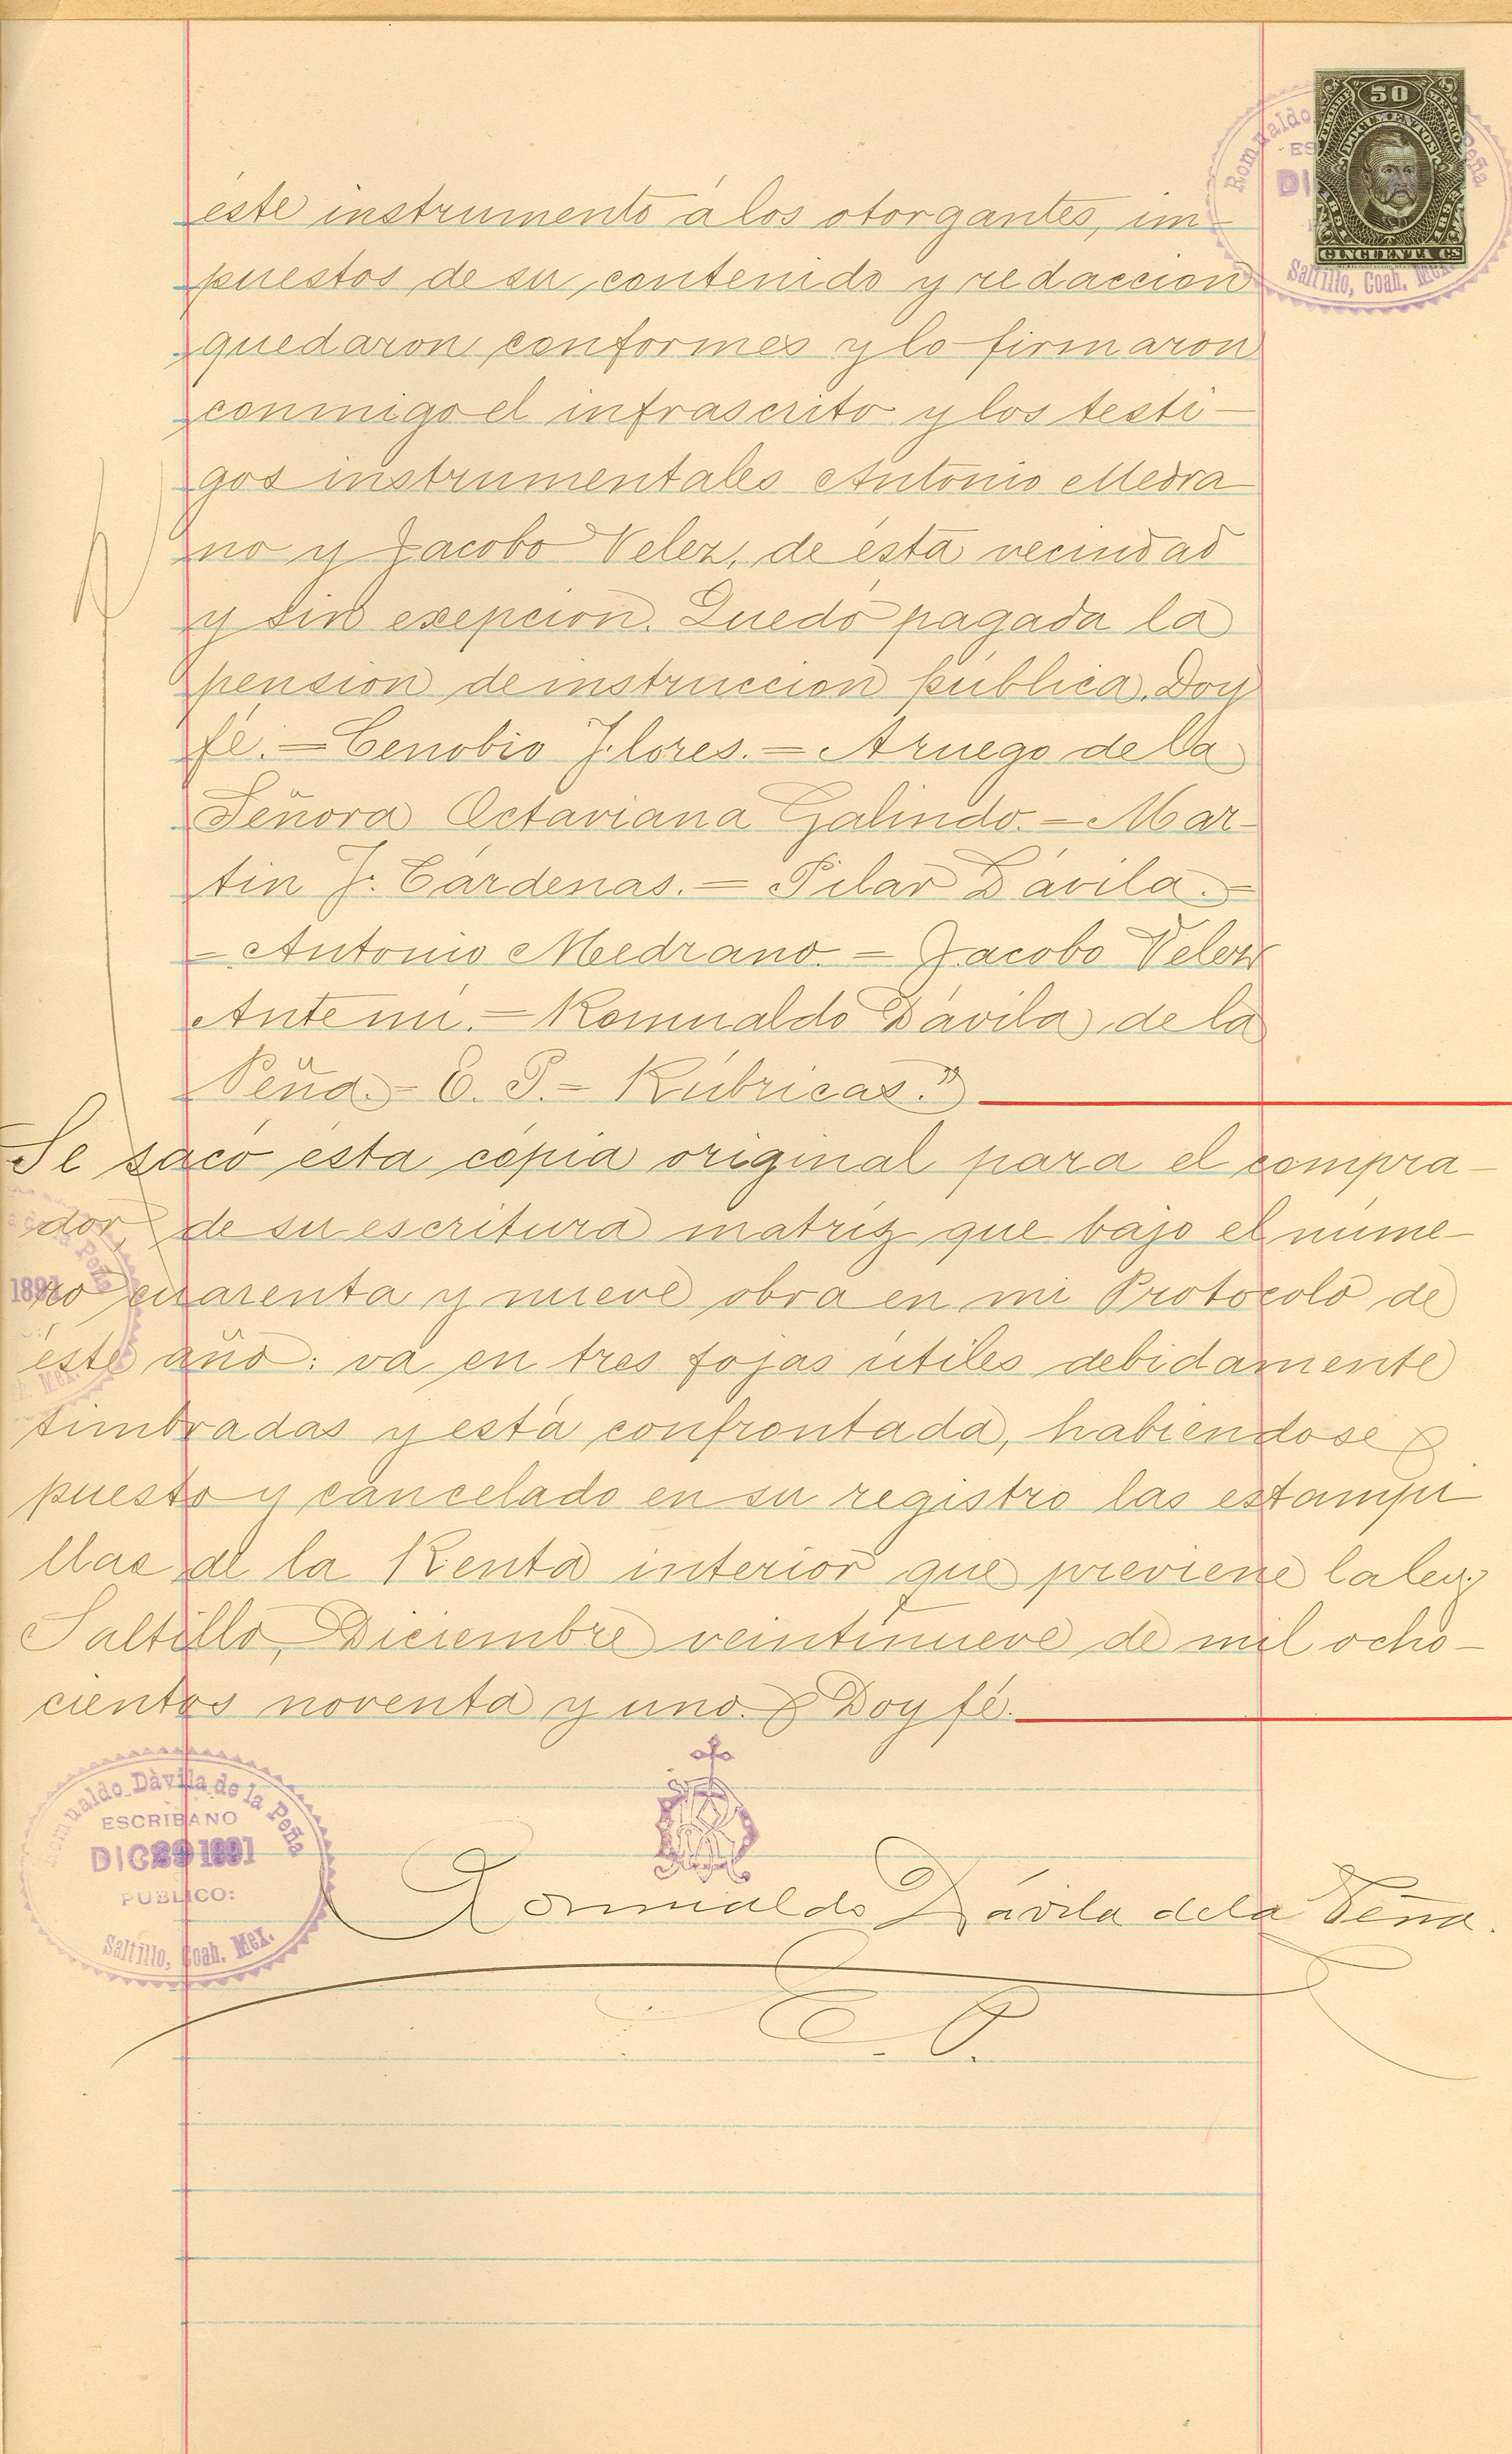 50
TIMBRE MEXICO
DOCUMENTOS
CINCUENTA CS
Romualdo Peña
ES
DI
Saltillo, Coah. Mex.
éste instrumento á los otorgantes, im-
puestos de su contenido y redaccion
quedaron conformes y lo firmaron
conmigo el infrascrito y los testi-
gos instrumentales Antonio Medra
no y Jacobo Velez, de ésta vecindad
y sin exepcion. Quedó pagada la
pension de instruccion pública. Doy
fé. = Cenobio Flores. = A ruego de la
Señora Octaviana Galindo. = Mar-
tin J. Cárdenas. = Pilar Dávila. =
= Antonio Medrano. = Jacobo Velez
Ante mí. = Romualdo Dávila de la
Peña. = E. P. = Rúbricas."
Se sacó ésta cópia original para el compra-
dor, de su escritura matríz que bajo el núme-
ro cuarenta y nueve obra en mi Protocolo de
éste año: va en tres fojas útiles debidamente
timbradas y está confrontada, habiendose
puesto y cancelado en su registro las estampi
llas de la Renta interior que previene la ley.
Saltillo, Diciembre veintinueve de mil ocho-
cientos noventa y uno. Doy fé.
Peña
1891
Mex.
Romualdo Dàvila de la Peña
ESCRIBANO
DIC 29 1891
PUBLICO:
Saltillo, Coah. Mex.
Romualdo Dávila de la Peña.
E. P.